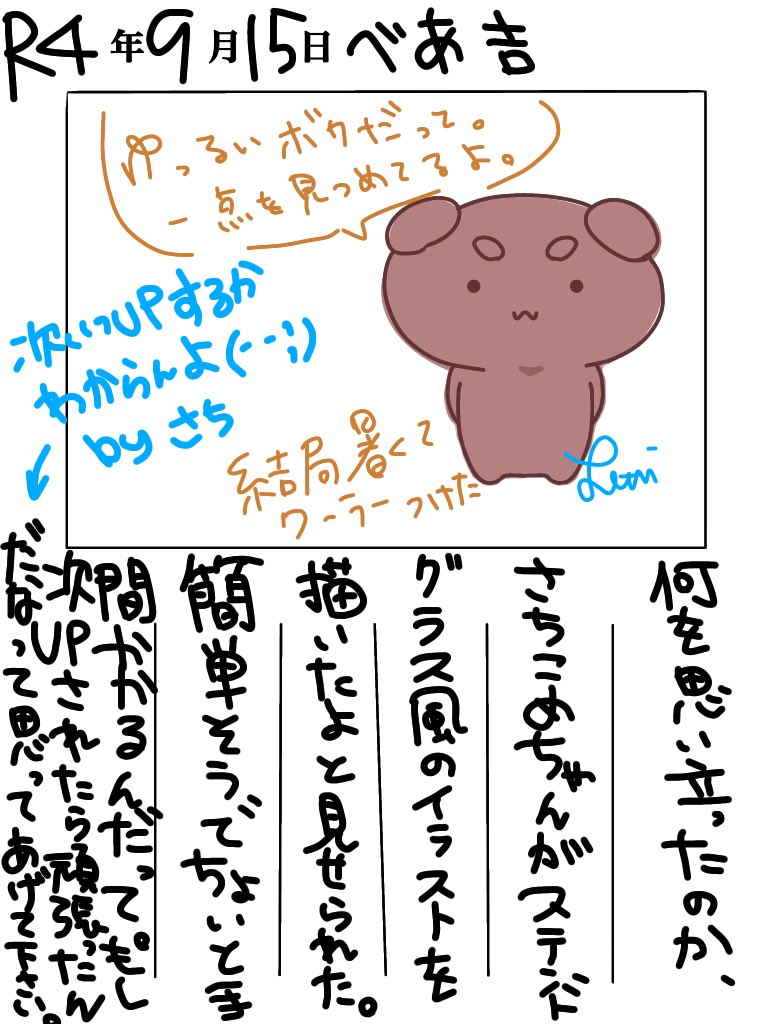 R4年9月15日 べあ吉
ゆっるいボクだって。
一点を見つめてるよ。
次いつUPするか
わからんよ(--;)
by さち
結局暑くて
クーラーつけた
何を思い立ったのか、
さちこめちゃんがステンド
グラス風のイラストを
描いたよと見せられた。
簡単そうでちょいと手
間かかるんだって。もし
次UPされたら頑張ったん
だなって思ってあげて下さい。